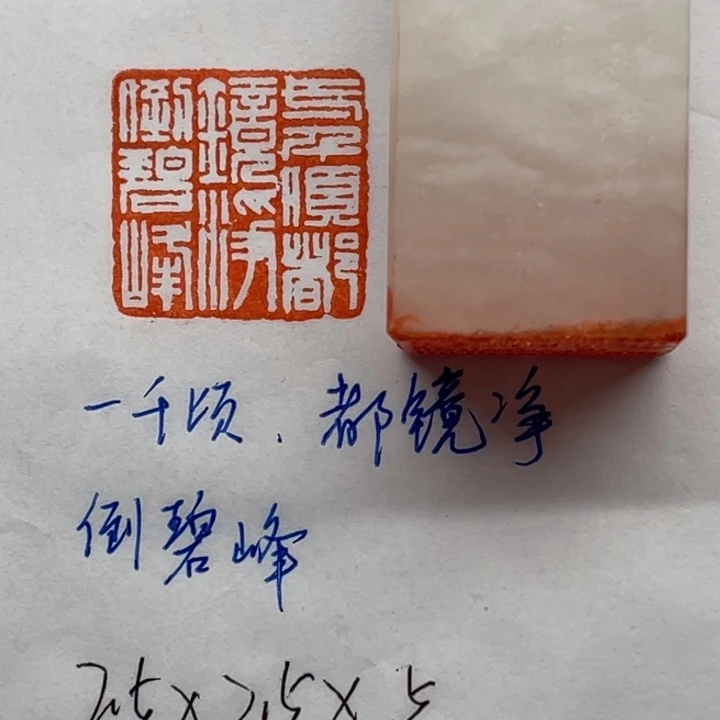 一千顷都镜净倒碧峰
一千顷、都镜净
倒碧峰
2.5×2.5×5